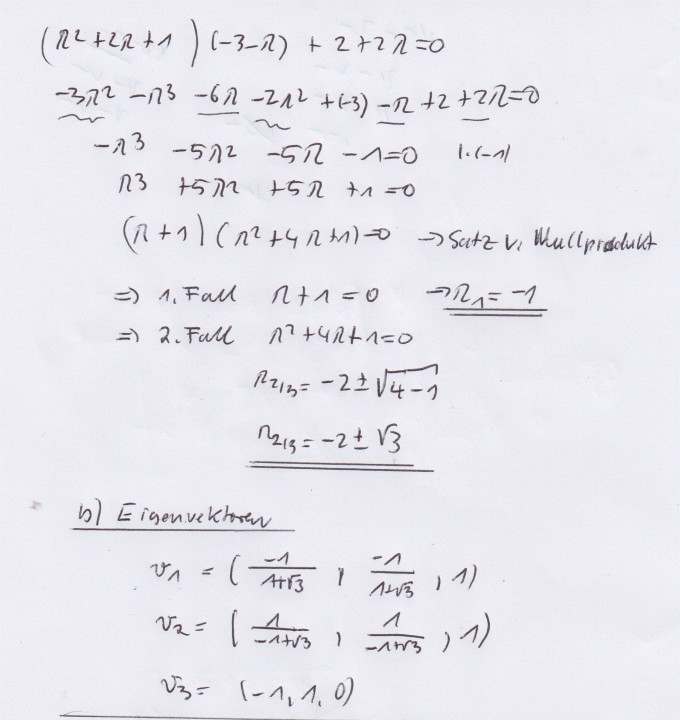 (λ²+2λ+1)(-3-λ) + 2+2λ=0
-3λ² -λ³ -6λ -2λ² +(-3) -λ +2 +2λ=0
-λ³ -5λ² -5λ -1=0 |·(-1)
λ3 +5λ² +5λ +1=0
(λ+1)(λ²+4λ+1)=0 → Satz v. Nullprodukt
=> 1. Fall λ+1=0 → λ₁=-1
=> 2. Fall λ²+4λ+1=0
λ₂/₃= -2±√4-1
λ₂/₃= -2±√3
b) Eigenvektoren
v₁ = (-1/1+√3, -1/1+√3, 1)
v₂ = (1/-1+√3, 1/-1+√3, 1)
v₃ = (-1, 1, 0)